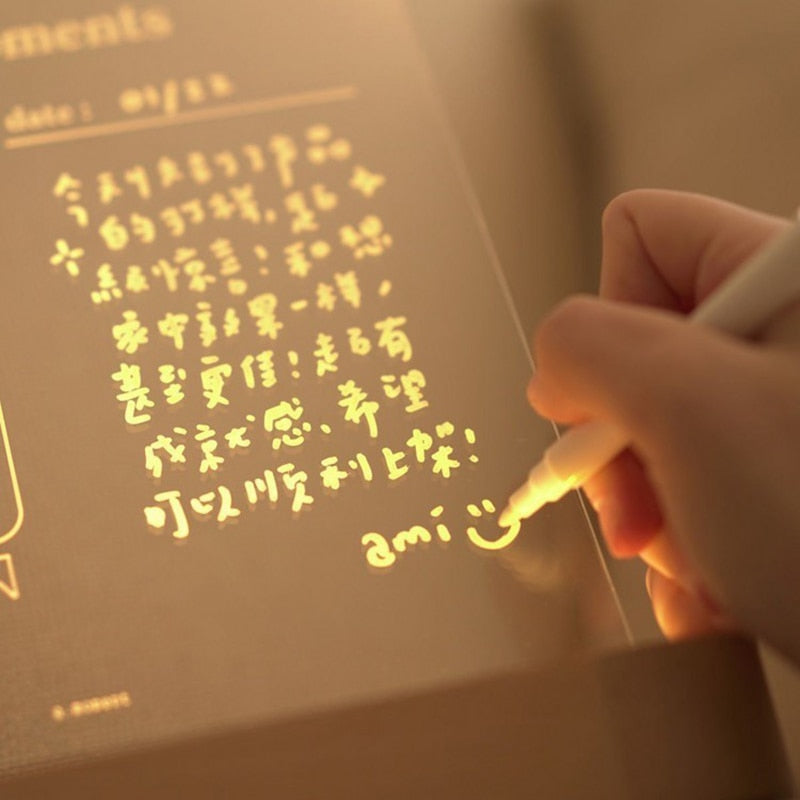 ments
date: 01/22
今天收到了產品
的打樣,超
級驚喜!和想
象中效果一樣,
甚至更佳!超有
成就感、希望
可以順利上架!
ami